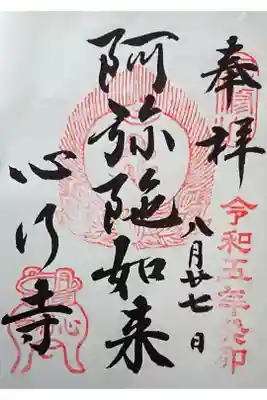 奉拝
令和五年癸卯
八月廿七日
阿弥陀如来
心行寺
心